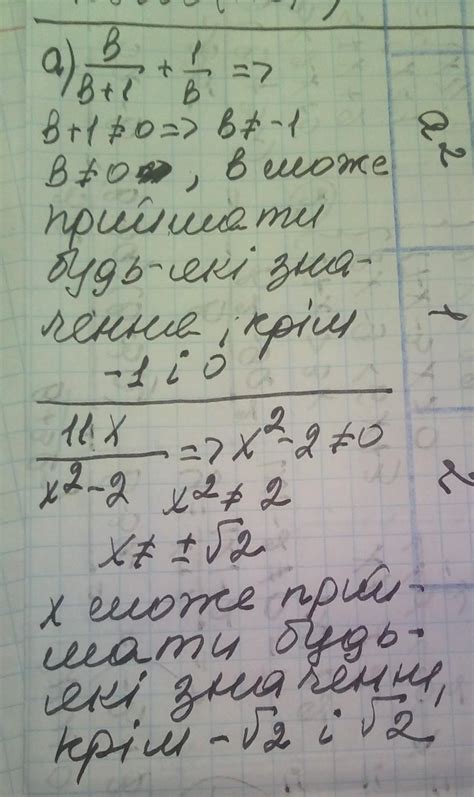 а) в/в+1 + 1/в =>
в+1≠0=> в≠-1
в≠0 , в може
приймати
будь-які зна-
чення, крім
-1 і 0
11x/x²-2 => x²-2≠0
x²≠2
x≠±√2
x може прий-
мати будь-
які значенн,
крім -√2 і √2
a²
1
2